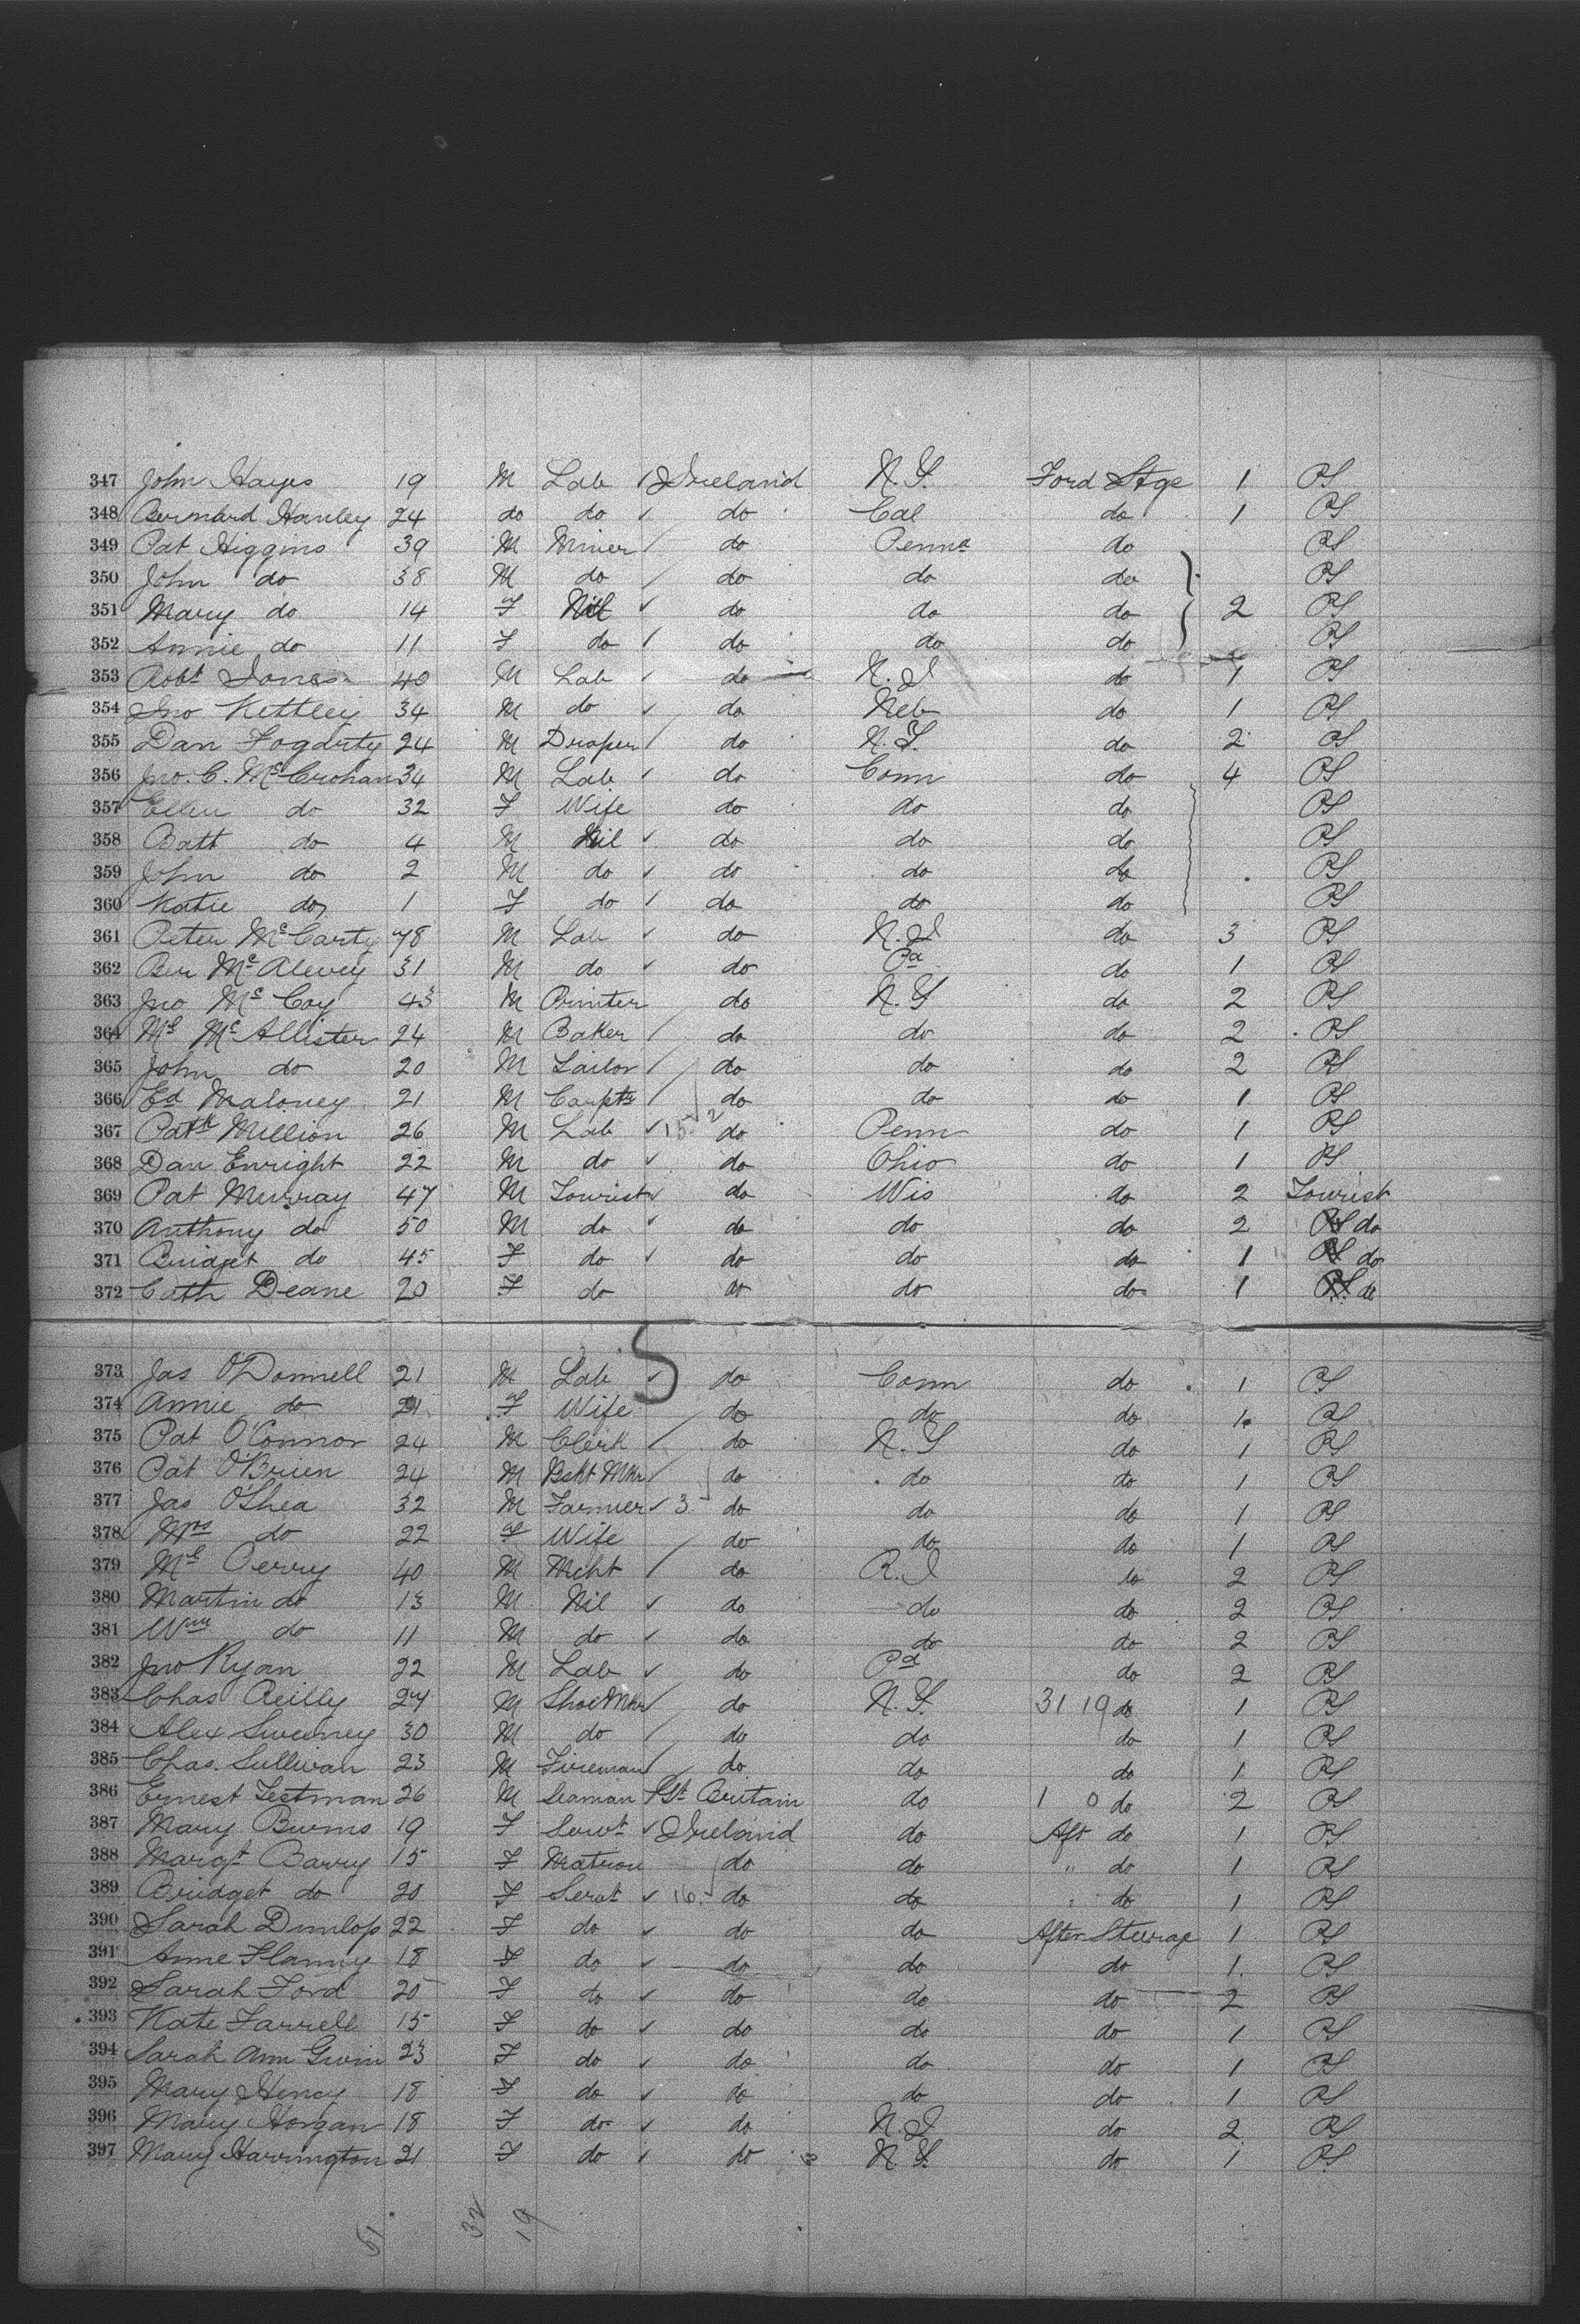 347 John Hayes 19 M Lab Ireland N.Y. Ford Stge 1 PS
348 Bernard Hanley 24 do do do Cal do 1 PS
349 Pat Higgins 39 M Miner do Penna do PS
350 John do 38 M do do do do PS
351 Mary do 14 F Nil do do do 2 PS
352 Annie do 11 F do do do do PS
353 Robt Jones 40 M Lab do N.J do 1 PS
354 Jno Kettley 34 M do do Neb do 1 PS
355 Dan Fogarty 24 M Draper do N.Y. do 2 PS
356 Jno. C. McCrohan 34 M Lab do Conn do 4 PS
357 Ellen do 32 F Wife do do do PS
358 Batt do 4 M Nil do do do PS
359 John do 2 M do do do do PS
360 Katie do 1 F do do do do PS
361 Peter McCarty 48 M Lab do N.J do 3 PS
362 Ber McAlevey 31 M do do Pa do 1 PS
363 Jno McCoy 43 M Printer do N.Y do 2 PS
364 Ml McAllister 24 M Baker do do do 2 PS
365 John do 20 M Tailor do do do 2 PS
366 Ed Maloney 21 M Carptr do do do 1 PS
367 Patk Million 26 M Lab 15 2 do Penn do 1 PS
368 Dan Enright 22 M do do Ohio do 1 PS
369 Pat Murray 47 M Tourist do Wis do 2 Tourist
370 Anthony do 50 M do do do do 2 PS do
371 Bridget do 45 F do do do do 1 PS do
372 Cath Deane 20 F do do do do 1 PS do
5
373 Jas O'Donnell 21 M Lab do Conn do 1 PS
374 Annie do 21 F Wife do do do 1 PS
375 Pat O'Connor 24 M Clerk do N.Y do 1 PS
376 Pat O'Brien 24 M Bskt Mkr do do do 1 PS
377 Jas O'Shea 32 M Farmer 3 do do do 1 PS
378 Mrs do 22 F Wife do do do 1 PS
379 Ml Perry 40 M Mcht do R.I do 2 PS
380 Martin do 13 M Nil do do do 2 PS
381 Wm do 11 M do do do do 2 PS
382 Jno Ryan 22 M Lab do Pa do 2 PS
383 Chas Reilly 24 M Shoe Mkr do N.Y. 31 19 do 1 PS
384 Alex Sweeney 30 M do do do do 1 PS
385 Chas. Sullivan 23 M Fireman do do do 1 PS
386 Ernest Testman 26 M Seaman Gt Britain do 1 0 do 2 PS
387 Mary Burns 19 F Servt Ireland do Aft do 1 PS
388 Margt Barry 15 F Matron do do " do 1 PS
389 Bridget do 20 F Servt 16 do do do 1 PS
390 Sarah Dunlop 22 F do do do After Steerage 1 PS
391 Anne Flanny 18 F do do do do 1 PS
392 Sarah Ford 20 F do do do do 2 PS
393 Kate Farrell 15 F do do do do 1 PS
394 Sarah Ann Gwin 23 F do do do do 1 PS
395 Mary Henay 18 F do do do do 1 PS
396 Mary Horgan 18 F do do N.J do 2 PS
397 Mary Harrington 21 F do do N.Y. do 1 PS
51 32 19